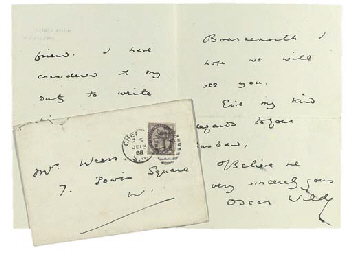 friend. I have
considered it my
duty to write
Bournemouth I
hope we will
see you.
my kind
regards to your
husband,
Believe me
very sincerely yours
Oscar Wilde
Mrs
7. Powis Square
W.